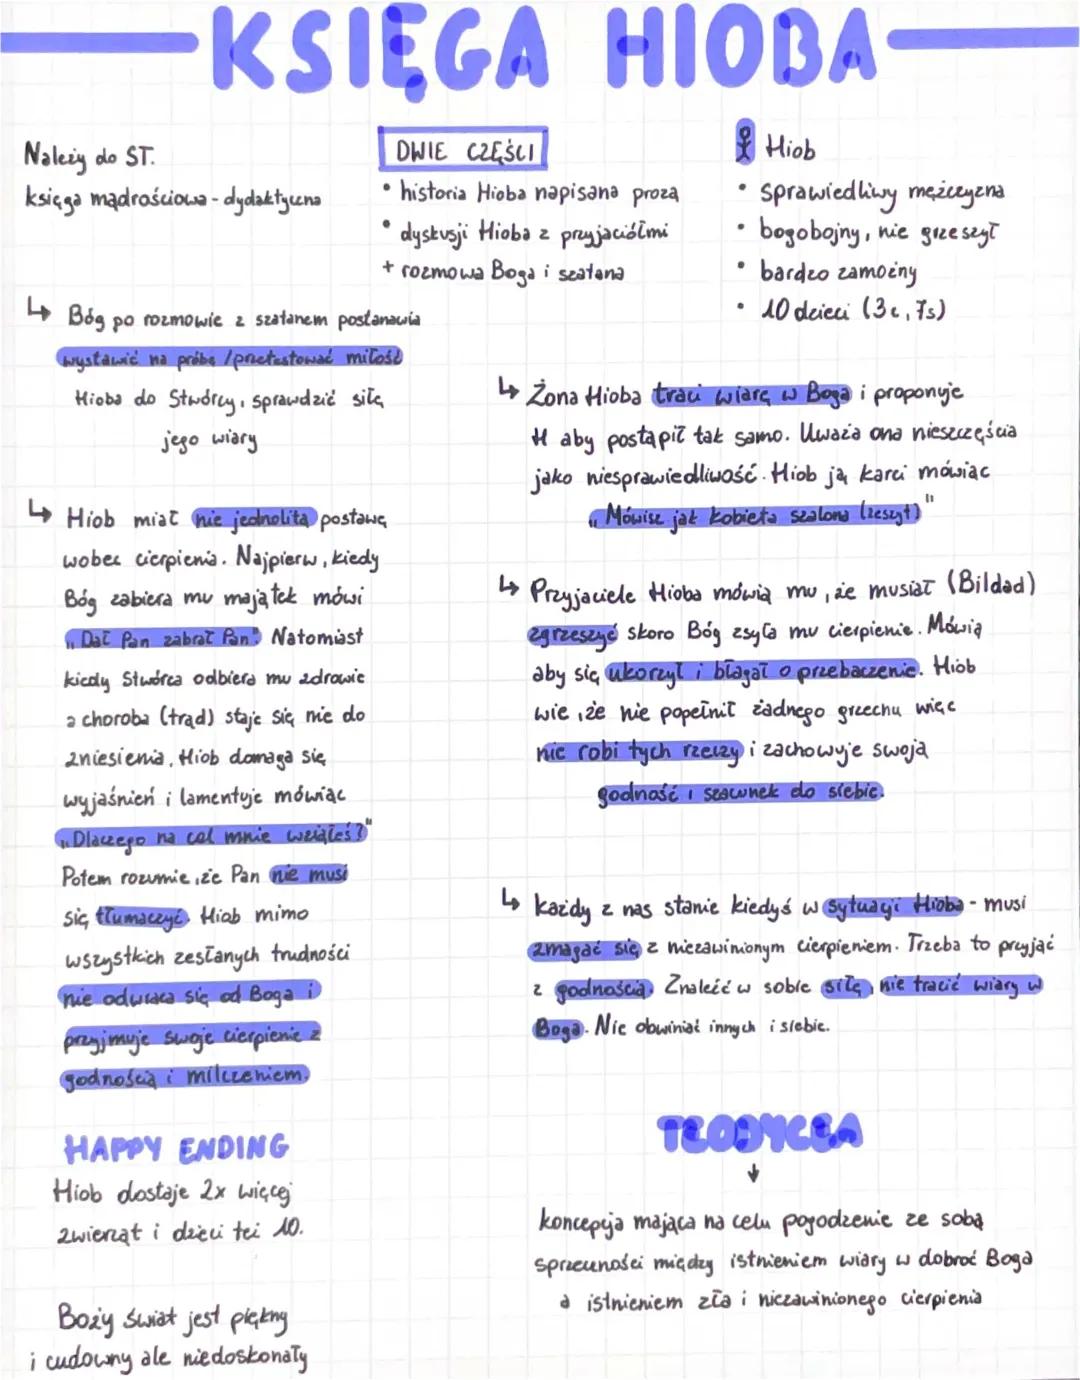 KSIĘGA HIOBA
Należy do ST.
księga mądrościowa - dydaktyczna
DWIE CZĘŚCI
• historia Hioba napisana prozą
• dyskusji Hioba z przyjaciółmi
+ rozmowa Boga i szatana
Hiob
• sprawiedliwy mężczyzna
• bogobojny, nie grzeszył
• bardzo zamożny
• 10 dzieci (3c, 7s)
↳ Bóg po rozmowie z szatanem postanawia
wystawić na próbę / przetestować miłość
Hioba do Stwórcy, sprawdzić siłę
jego wiary
↳ Hiob miał nie jednolitą postawę
wobec cierpienia. Najpierw, kiedy
Bóg zabiera mu majątek mówi
„Dał Pan zabrał Pan". Natomiast
kiedy Stwórca odbiera mu zdrowie
a choroba (trąd) staje się nie do
zniesienia, Hiob domaga się
wyjaśnień i lamentuje mówiąc
„Dlaczego na cel mnie wziąłeś?"
Potem rozumie, że Pan nie musi
się tłumaczyć. Hiob mimo
wszystkich zesłanych trudności
nie odwraca się od Boga i
przyjmuje swoje cierpienie z
godnością i milczeniem.
HAPPY ENDING
Hiob dostaje 2x więcej
zwierząt i dzieci też 10.
Boży świat jest piękny
i cudowny ale niedoskonały
↳ Żona Hioba traci wiarę w Boga i proponuje
H aby postąpił tak samo. Uważa ona nieszczęścia
jako niesprawiedliwość. Hiob ją karci mówiąc
„Mówisz jak kobieta szalona (zeszyt)"
↳ Przyjaciele Hioba mówią mu, że musiał (Bildad)
zgrzeszyć skoro Bóg zsyła mu cierpienie. Mówią
aby się ukorzył i błagał o przebaczenie. Hiob
wie, że nie popełnił żadnego grzechu więc
nie robi tych rzeczy i zachowuje swoją
godność i szacunek do siebie.
↳ Każdy z nas stanie kiedyś w sytuacji Hioba - musi
zmagać się z niezawinionym cierpieniem. Trzeba to przyjąć
z godnością. Znaleźć w sobie siłę, nie tracić wiary w
Boga. Nie obwiniać innych i siebie.
TEODYCEA
↓
koncepcja mająca na celu pogodzenie ze sobą
sprzeczności między istnieniem wiary w dobroć Boga
a istnieniem zła i niezawinionego cierpienia